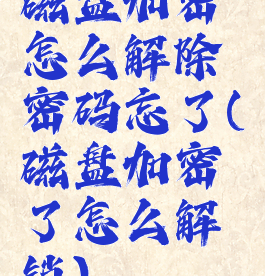 磁盘加密
怎么解除
密码忘了(
磁盘加密
了怎么解
锁)